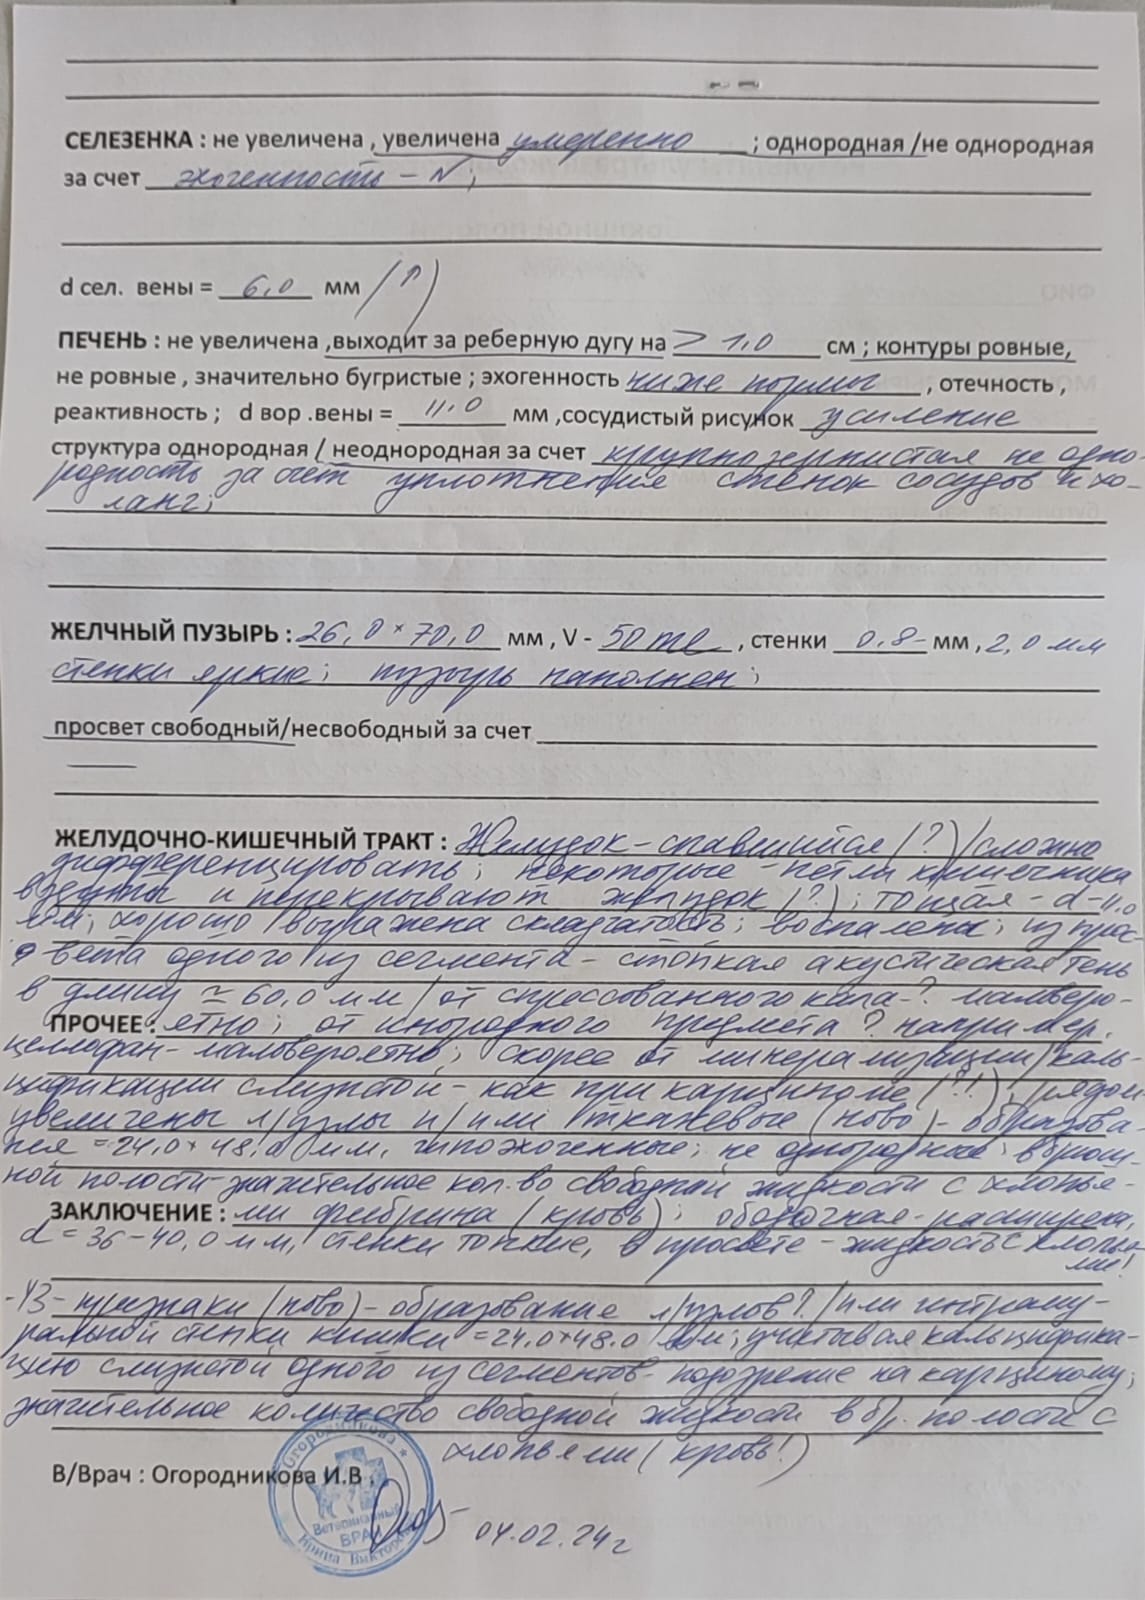 СЕЛЕЗЕНКА : не увеличена , увеличена умеренно ; однородная /не однородная
за счет эхогенность – N ;
d сел. вены = 6,0 мм (↑)
ПЕЧЕНЬ : не увеличена ,выходит за реберную дугу на > 1,0 см ; контуры ровные,
не ровные , значительно бугристые ; эхогенность ниже нормы , отечность ,
реактивность ; d вор .вены = 11.0 мм ,сосудистый рисунок усиление
структура однородная / неоднородная за счет крупнозернистая не одно-
родность за счет уплотнения стенок сосудов и хо-
ланг;
ЖЕЛЧНЫЙ ПУЗЫРЬ : 26,0 × 70,0 мм , V - 50 ml , стенки 0.8 - мм , 2,0 мм
стенки яркие; пузырь наполнен;
просвет свободный/несвободный за счет
—
ЖЕЛУДОЧНО-КИШЕЧНЫЙ ТРАКТ : Желудок – спавшийся (?) /сложно
дифференцировать; некоторые петли кишечника
вздуты и перекрывают желудок (?); тощая – d – 11,0
мм; хорошо выражена складчатость; воспалена; из прос-
вета одного из сегмента – стойкая акустическая тень
в длину ≃ 60,0 мм /от спрессованного кала -? маловеро-
ПРОЧЕЕ : ятно; от инородного предмета? например.
целлофан – маловероятно; скорее от минерализации/каль-
цификации слизистой – как при карциноме (?!); рядом
увеличены л/узлы и/или тканевые (ново) – образова-
ния = 24,0 × 48,0 мм, гипоэхогенные; не однородные; в брюш-
ной полости значительное кол-во свободной жидкости с хлопья-
ЗАКЛЮЧЕНИЕ : ми фибрина (кровь); ободочная – расширена,
d = 36 – 40,0 мм, стенки тонкие, в просвете – жидкость с хлопья-
ми!
- УЗ – признаки (ново) – образование л/узлов? /или интраму-
ральной стенки кишки = 24.0 × 48.0 мм; учитывая кальцифика-
цию слизистой одного из сегментов – подозрение на карциному;
значительное количество свободной жидкости в бр. полости с
хлопьями (кровь!)
В/Врач : Огородникова И.В .
Огородникова
Ветеринарный
ВРАЧ
Ирина Викторовна
04.02.24г